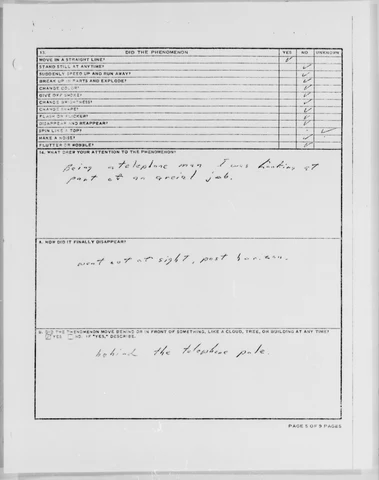 13. DID THE PHENOMENON YES NO UNKNOWN
MOVE IN A STRAIGHT LINE? ✓
STAND STILL AT ANYTIME? ✓
SUDDENLY SPEED UP AND RUN AWAY? ✓
BREAK UP IN PARTS AND EXPLODE? ✓
CHANGE COLOR? ✓
GIVE OFF SMOKE? ✓
CHANGE BRIGHTNESS? ✓
CHANGE SHAPE? ✓
FLASH OR FLICKER? ✓
DISAPPEAR AND REAPPEAR? ✓
SPIN LIKE A TOP? ✓
MAKE A NOISE? ✓
FLUTTER OR WOBBLE? ✓
14. WHAT DREW YOUR ATTENTION TO THE PHENOMENON?
Being a telephone man I was looking at
part of an aerial job.
A. HOW DID IT FINALLY DISAPPEAR?
went out of sight, past horizon.
B. DID THE PHENOMENON MOVE BEHIND OR IN FRONT OF SOMETHING, LIKE A CLOUD, TREE, OR BUILDING AT ANY TIME?
YES NO. IF "YES," DESCRIBE.
behind the telephone pole.
PAGE 5 OF 9 PAGES